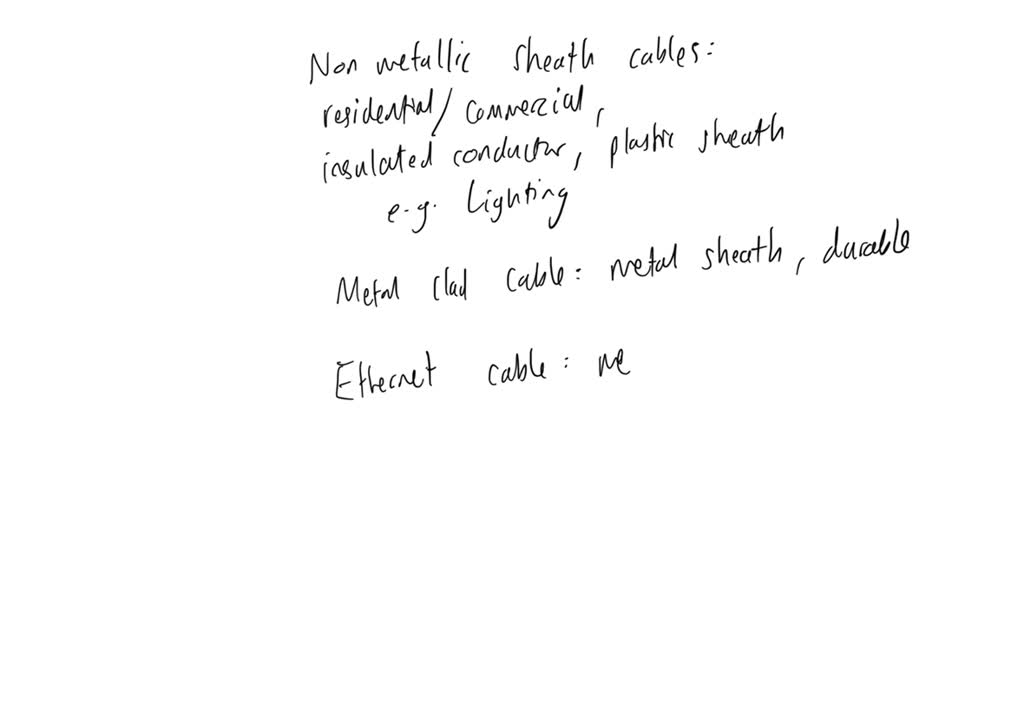 Non metallic sheath cables:
residential/commercial,
insulated conductor, plastic sheath
e.g. Lighting
Metal clad cable: metal sheath, durable
Ethernet cable: ne